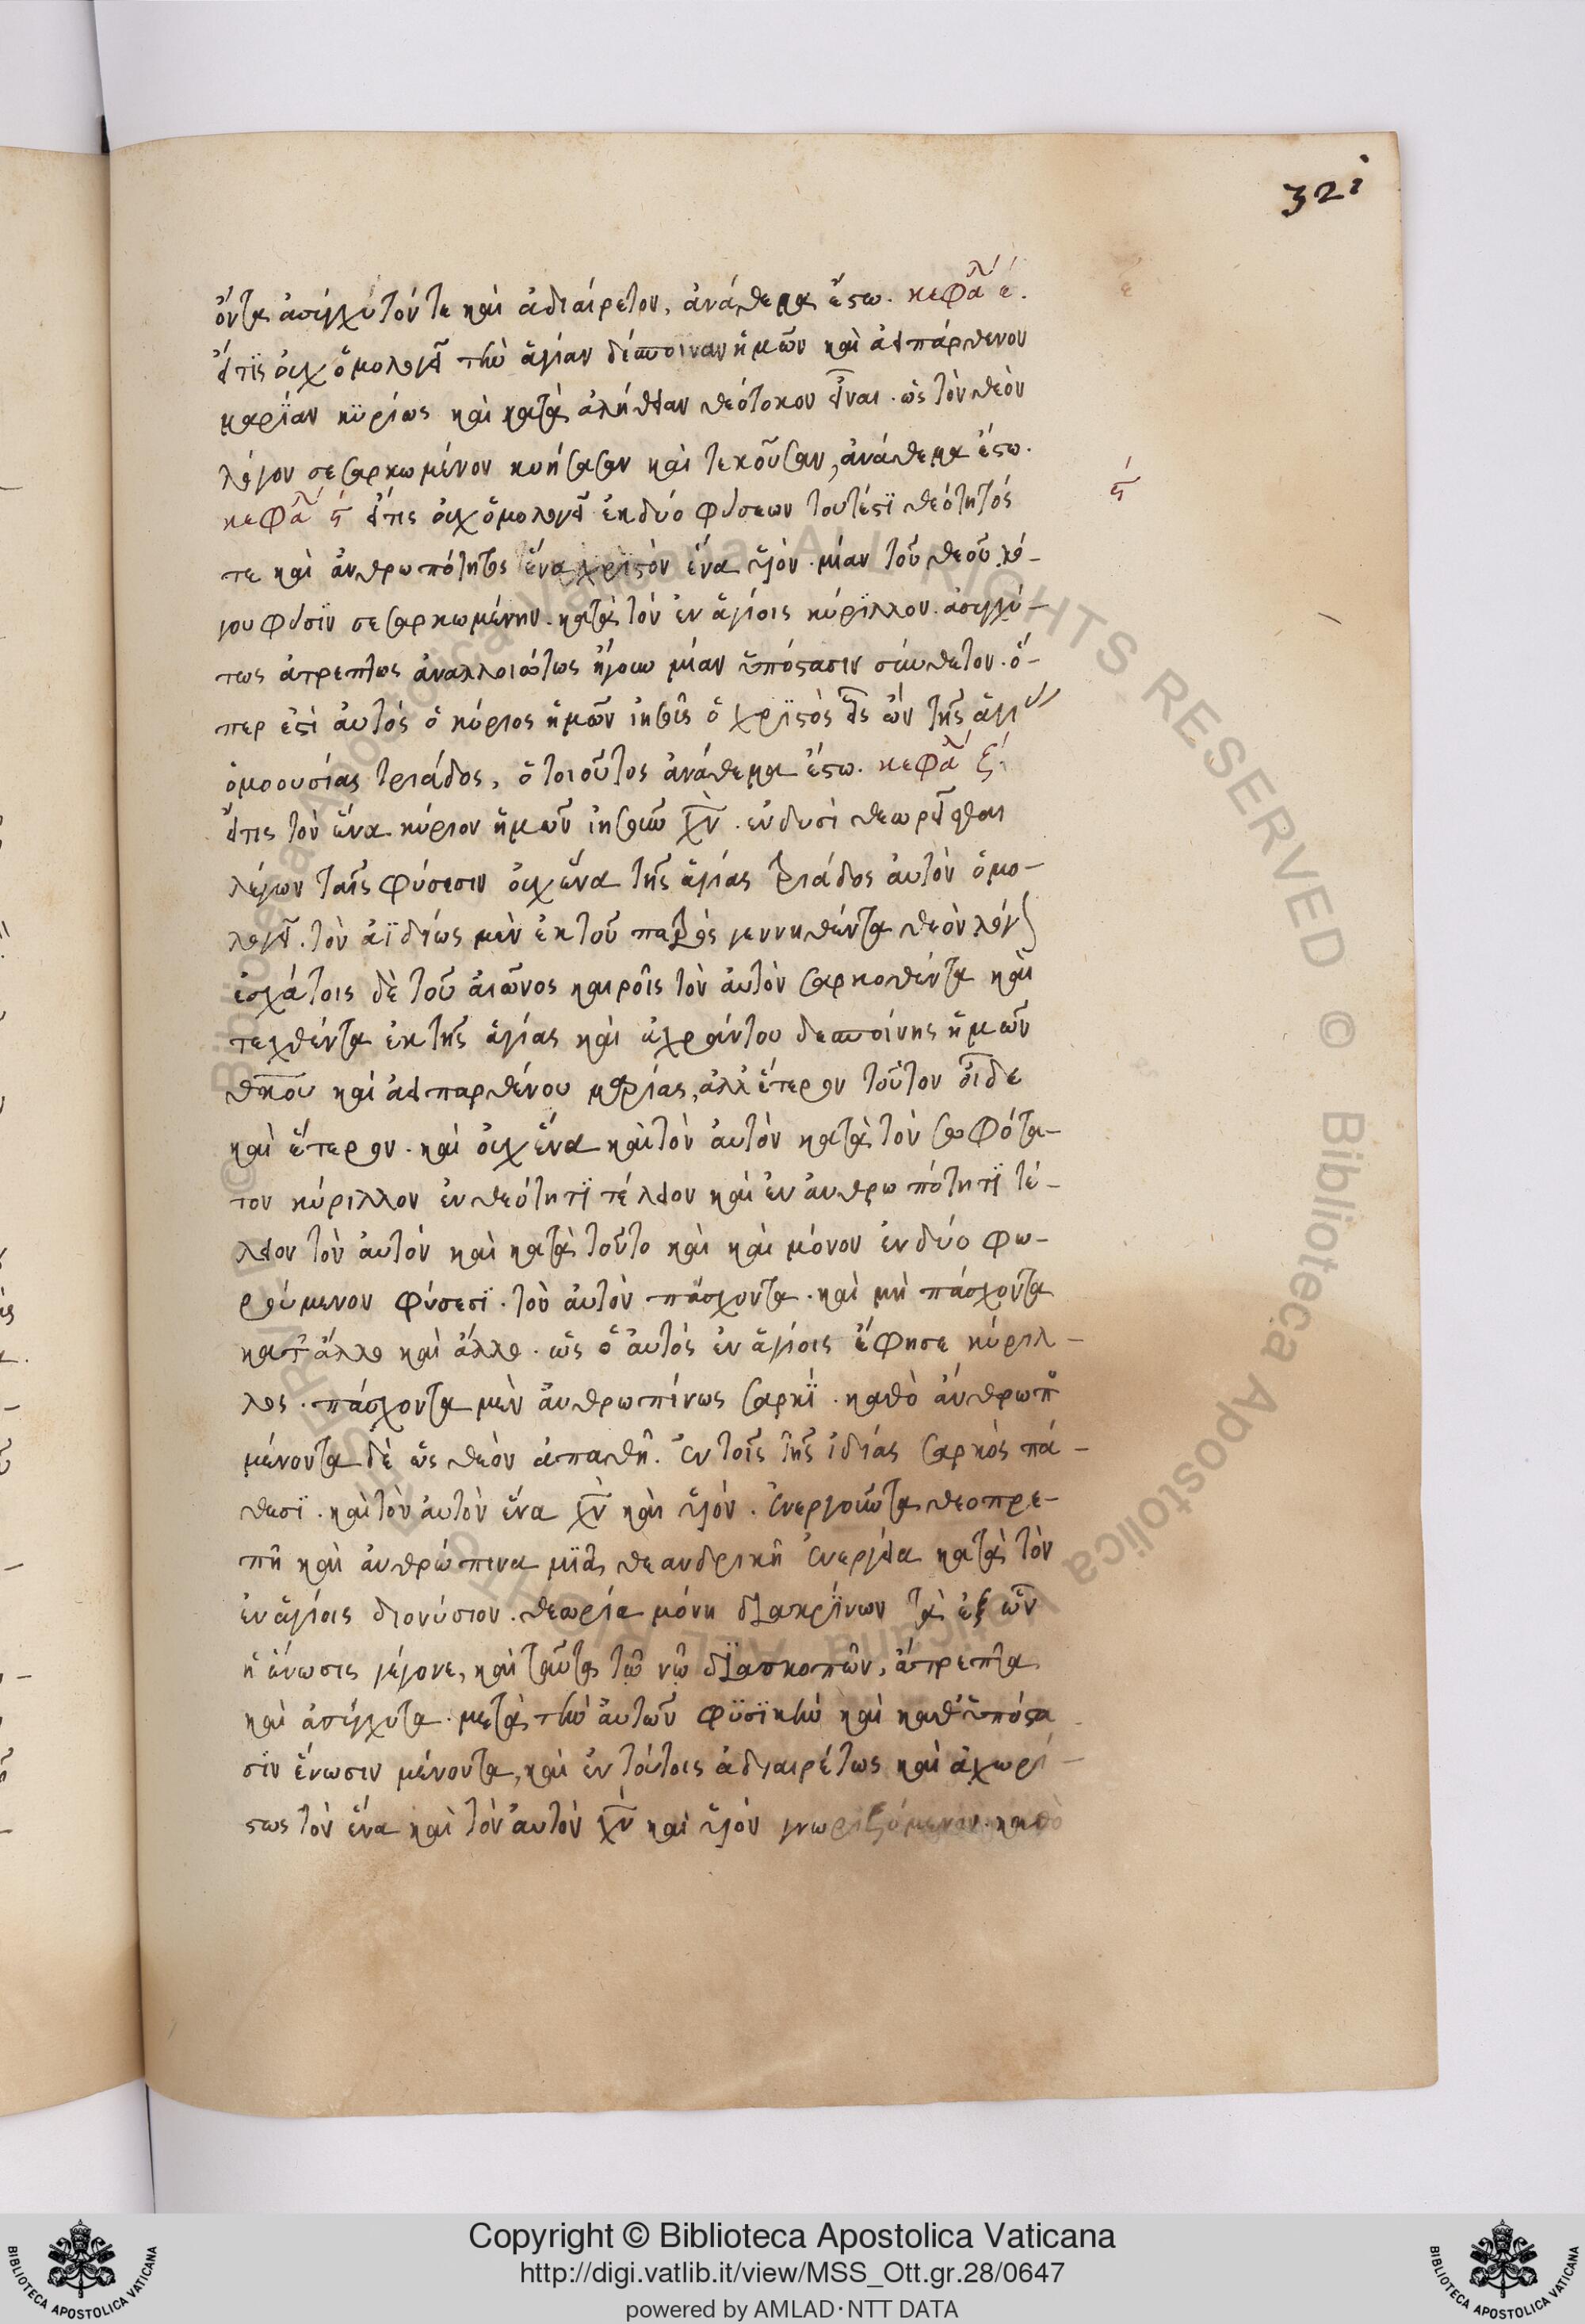 321
ὄντα ἀσύγχυτόν τε καὶ ἀδιαίρετον, ἀνάθεμα ἔστω. κεφαλ ε.
εἴ τϊς οὐχ ὁμολογεῖ τὴν ἁγίαν δέσποιναν ἡμῶν καὶ ἀειπάρθενον
μαρΐαν κϋρίως καὶ κατὰ ἀλήθειαν θεότοκον εἶναι. ὡς τὸν θεὸν
λόγον σεσαρκωμένον κυήσασαν καὶ τεκοῦσαν, ἀνάθεμα ἔστω.
κεφαλ ϛ εἴ τις οὐχ ὁμολογεῖ ἐκ δύο φύσεων τουτέστϊ θεότητός
ϛ
τε καὶ ἀνθρωπότητος ἕνα χρϊστὸν ἕνα υἱὸν. μίαν τοῦ θεοῦ λό-
γου φύσϊν σεσαρκωμένην. κατὰ τὸν ἐν ἁγίοις κύρϊλλον. ἀσυγχύ-
τως ἀτρεπτως ἀναλλοιώτως ἤγουν μίαν ὑπόστασιν σύνθετον. ὅ-
περ ἐστὶ ἀυτός ὁ κύριος ἡμῶν ἰησοῦς ὁ χρϊστὸς εἷς ὢν τῆς ἁγι
ὁμοουσίας τριάδος, ὁ τοιοῦτος ἀνάθεμα ἔστω. κεφαλ ζ.
εἴ τις τὸν ἕνα κύριον ἡμῶν ἰησοῦν χν. ἐν δυσὶ θεωρεῖσθαι
λέγων ταῖς φύσεσιν οὐχ ἕνα τῆς ἁγίας τριάδος ἀυτὸν ὁμο-
λογεῖ. τὸν ἀϊδίως μὲν ἐκ τοῦ πατρὸς γεννηθέντα θεὸν λόγ
ἐσχάτοις δὲ τοῦ ἀιῶνος καιροῖς τὸν ἀυτὸν σαρκοθέντα καὶ
τεχθέντα ἐκ τῆς ἁγίας καὶ ἀχράντου δεσποίνης ἡμῶν
θκου καὶ ἀειπαρθένου μαρίας, ἀλλ ἕτερον τοῦτον οἶδε
καὶ ἕτερον. καὶ οὐχ ἕνα καὶ τὸν ἀυτὸν κατὰ τὸν σοφότα-
τον κύριλλον ἐν θεότητϊ τέλειον καὶ ἐν ἀνθρωπότητϊ τέ-
λειον τὸν ἀυτόν καὶ κατὰ τοῦτο καὶ καὶ μόνον ἐν δύο φω-
ρούμενον φύσεσϊ. τὸν ἀυτὸν πάσχοντα. καὶ μὴ πάσχοντα
κατ ἄλλο καὶ ἄλλο. ὡς ὁ ἀυτὸς ἐν ἁγίοις ἔφησε κύριλ-
λος. πάσχοντα μὲν ἀνθρωπίνως σαρκϊ. καθὸ ἄνθρωπ
μένοντα δὲ ὡς θεὸν ἀπαθῆ. ἐν τοῖς τῆς ἰδίας σαρκὸς πά-
θεσϊ. καὶ τὸν ἀυτὸν ἕνα χν καὶ υἱὸν. ἐνεργοῦντα θεοπρε-
πῆ καὶ ἀνθρώπινα μϊᾶ θεανδρικῆ ἐνεργεία κατὰ τὸν
ἐν ἁγίοις διονύσιον. θεωρία μόνη διακρίνων τὰ ἐξ ὧν
ἡ ἕνωσις γέγονε, καὶ ταῦτα τῶ νῶ διασκοπῶν, ἄτρεπτα
καὶ ἀσύγχυτα. μετὰ τὴν ἀυτῶν φϋσϊκὴν καὶ καθ ὑπόστα
σϊν ἕνωσιν μένοντα, καὶ ἐν τούτοις ἀδιαιρέτως καὶ ἀχωρί-
στως τὸν ἕνα καὶ τὸν ἀυτὸν χν καὶ υἱὸν γνωριζόμενον. καθὸ
Copyright © Biblioteca Apostolica Vaticana
http://digi.vatlib.it/view/MSS_Ott.gr.28/0647
powered by AMLAD·NTT DATA